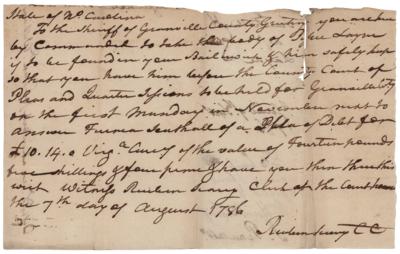 State of No. Carolina
To the Sheriff of Granville County Greeting you are here
by Commanded to take the body of
if to be found in your Bailiwick & him safely keep
so that you have him before the County Court of
Pleas and Quarter Sessions to be held for Granville
on the first Monday in November next to
answer Furnea Southall of a Plea of Debt for
£10.14.0 Virga. Curcy of the value of Fourteen pounds
five shillings & four pence & have you then there this
writ Witness Reuben Searcy Clerk of the Court
the 7th day of August 1786
Reuben Searcy CC